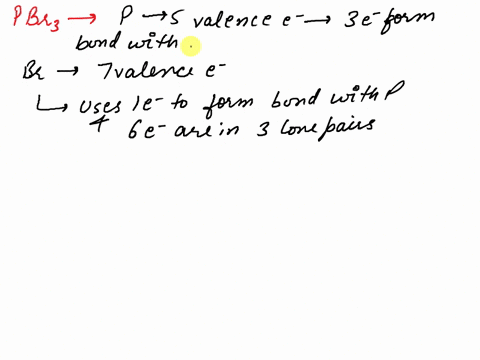 PBr3 → P → 5 valence e- → 3e- form
bond with
Br → 7 valence e-
↳ uses 1e- to form bond with P
4 6e- are in 3 lone pairs